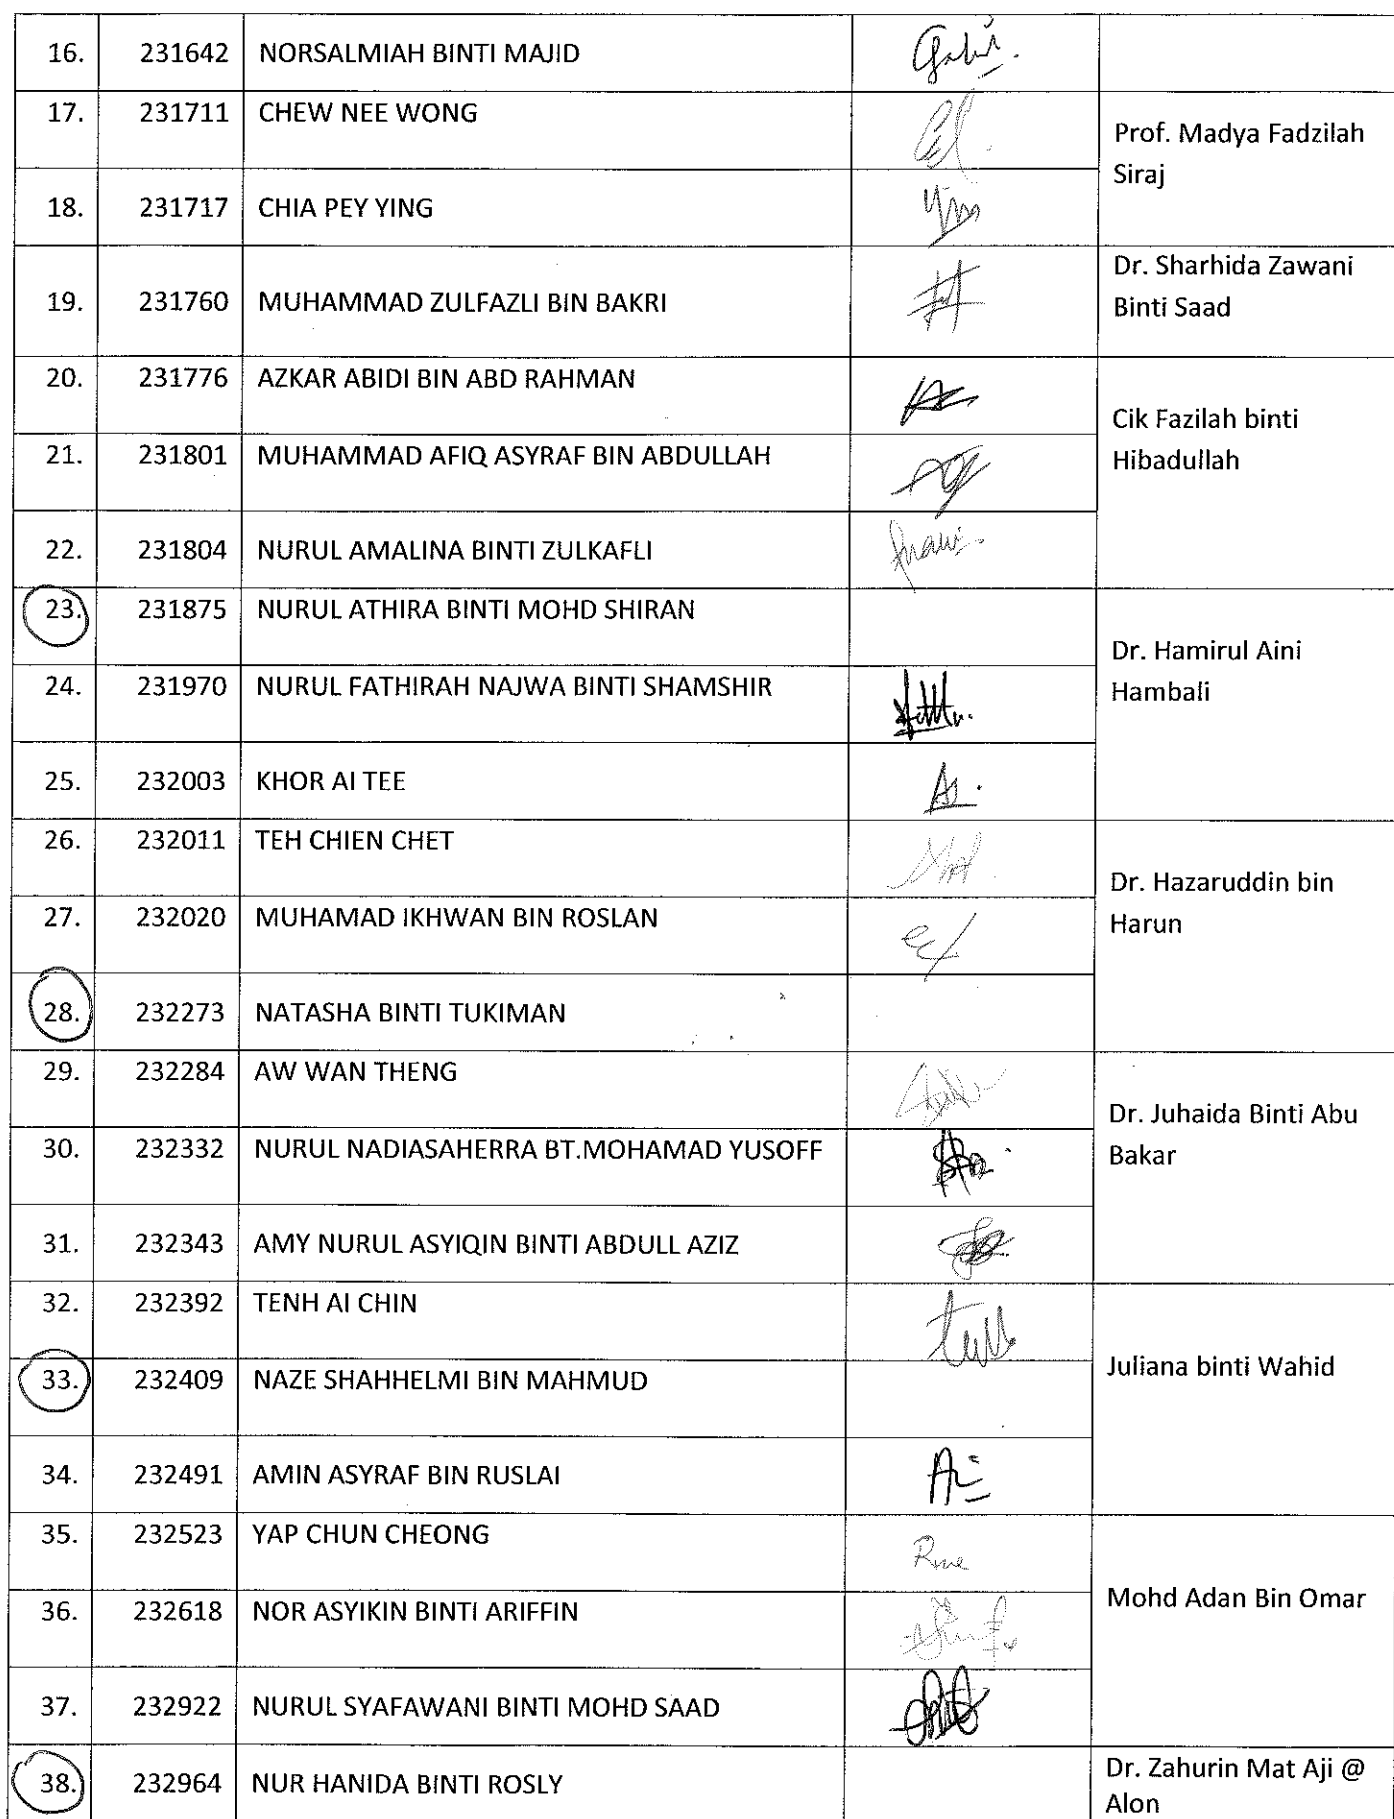 16. 231642 NORSALMIAH BINTI MAJID
17. 231711 CHEW NEE WONG
Prof. Madya Fadzilah
Siraj
18. 231717 CHIA PEY YING
Dr. Sharhida Zawani
Binti Saad
19. 231760 MUHAMMAD ZULFAZLI BIN BAKRI
20. 231776 AZKAR ABIDI BIN ABD RAHMAN
Cik Fazilah binti
Hibadullah
21. 231801 MUHAMMAD AFIQ ASYRAF BIN ABDULLAH
22. 231804 NURUL AMALINA BINTI ZULKAFLI
23. 231875 NURUL ATHIRA BINTI MOHD SHIRAN
Dr. Hamirul Aini
Hambali
24. 231970 NURUL FATHIRAH NAJWA BINTI SHAMSHIR
25. 232003 KHOR AI TEE
26. 232011 TEH CHIEN CHET
Dr. Hazaruddin bin
Harun
27. 232020 MUHAMAD IKHWAN BIN ROSLAN
28. 232273 NATASHA BINTI TUKIMAN
29. 232284 AW WAN THENG
Dr. Juhaida Binti Abu
Bakar
30. 232332 NURUL NADIASAHERRA BT.MOHAMAD YUSOFF
31. 232343 AMY NURUL ASYIQIN BINTI ABDULL AZIZ
32. 232392 TENH AI CHIN
Juliana binti Wahid
33. 232409 NAZE SHAHHELMI BIN MAHMUD
34. 232491 AMIN ASYRAF BIN RUSLAI
35. 232523 YAP CHUN CHEONG
Mohd Adan Bin Omar
36. 232618 NOR ASYIKIN BINTI ARIFFIN
37. 232922 NURUL SYAFAWANI BINTI MOHD SAAD
38. 232964 NUR HANIDA BINTI ROSLY
Dr. Zahurin Mat Aji @
Alon